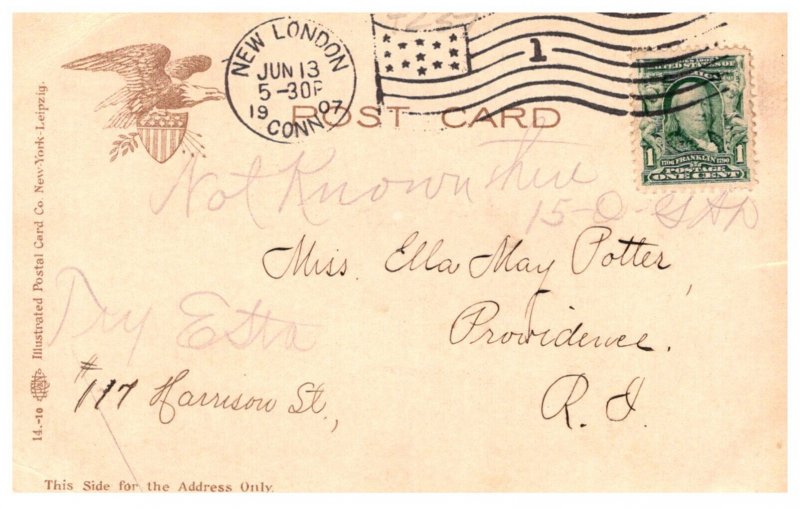 NEW LONDON
JUN 13
5-30P
19 07
CONN.
1
UNITED STATES OF
1 FRANKLIN 1
POSTAGE
ONE CENT
POST CARD
Not Known
Miss. Ella May Potter,
Try
Providence.
#117 Harrison St.,
R. I.
14.-10 Illustrated Postal Card Co. New-York-Leipzig.
This Side for the Address Only.